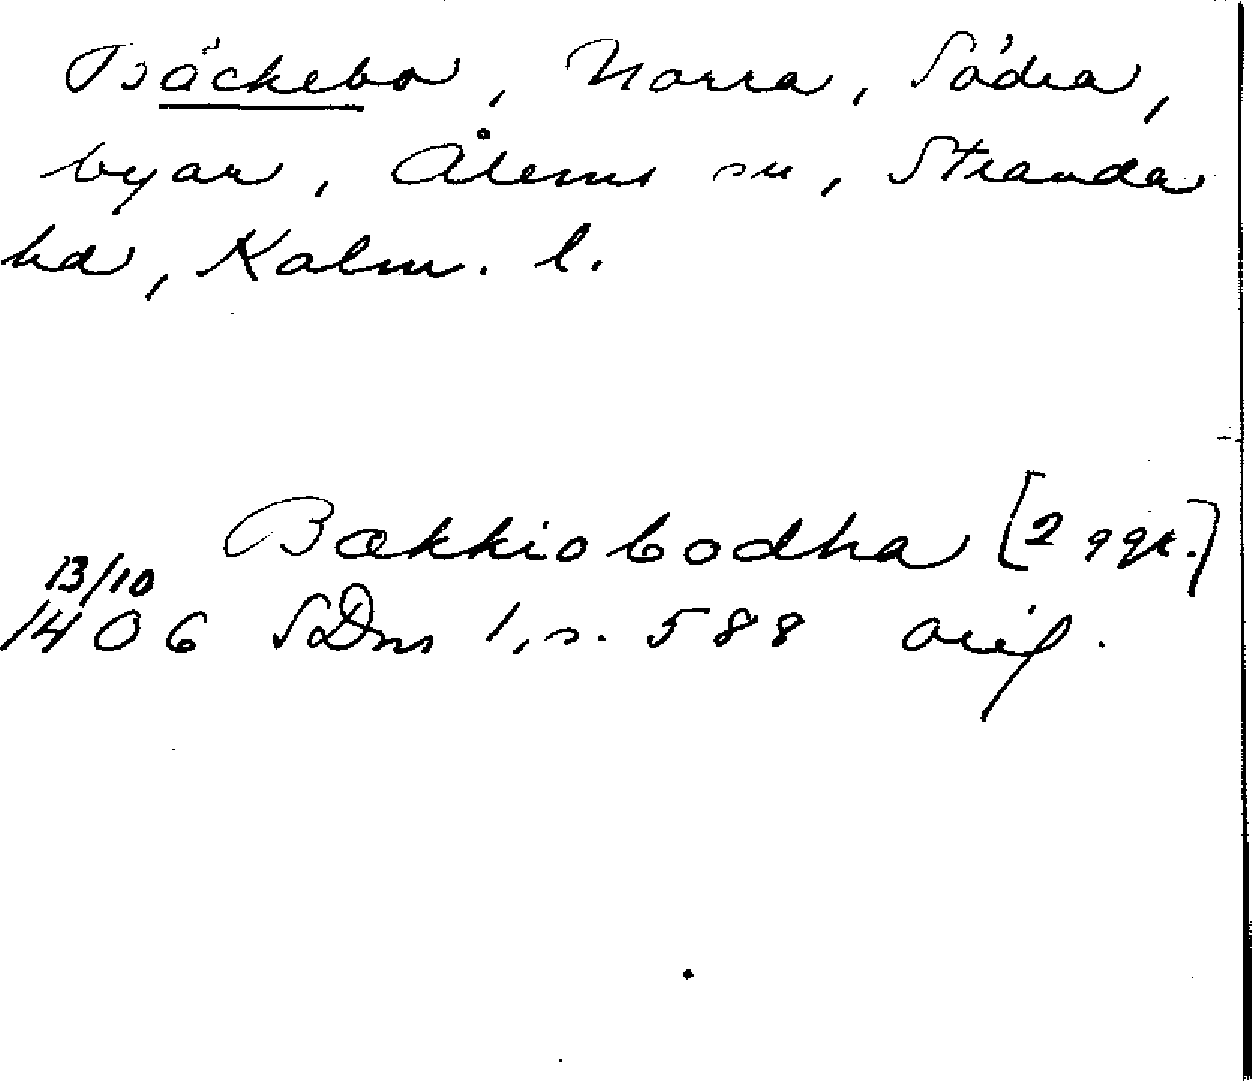 Bäckebo, Norra, Södra,
byar, Ålems sn, Stranda
hd, Kalm. l.
Bækkiobodha [2 ggr.]
13/10
1406 SDns 1, s. 588 orig.